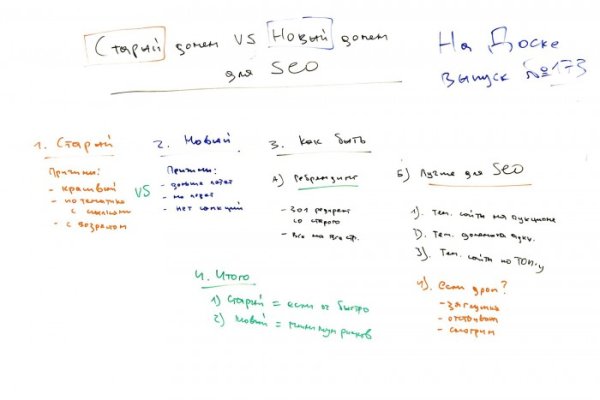 Старый домен VS Новый домен
для SEO
На Доске
выпуск №173
1. Старый
Причины:
- красивый
- по тематике
с ссылками
- с возрастом
VS
2. Новый
Причины:
- дольше
- не
- нет санкций
3. Как быть
А) Ребрендинг
- 301 редирект
со старого
- Все на
Б) Лучше для SEO
1). Тем. сайты на аукционе
2). Тем. домены
3). Тем. сайты по ТОП-у
4). Если дроп?
- заглушка
- отстоять
- смотрим
4. Итого
1) Старый = если ок быстро
2) Новый = минимум рисков